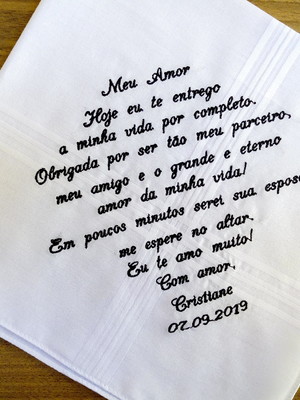 Meu Amor
Hoje eu te entrego
a minha vida por completo.
Obrigada por ser tão meu parceiro,
meu amigo e o grande e eterno
amor da minha vida!
Em poucos minutos serei sua esposa
me espere no altar.
Eu te amo muito!
Com amor,
Cristiane
07.09.2019